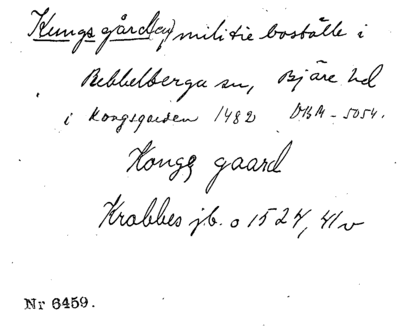 Kungsgård(en) militieboställe i
Bebbelberga sn, Bjäre hd
i Kongsgarden 1482 DBM-5054.
Kongs gaard
Krabbes jb. o 1524, 41v
Nr 6459.